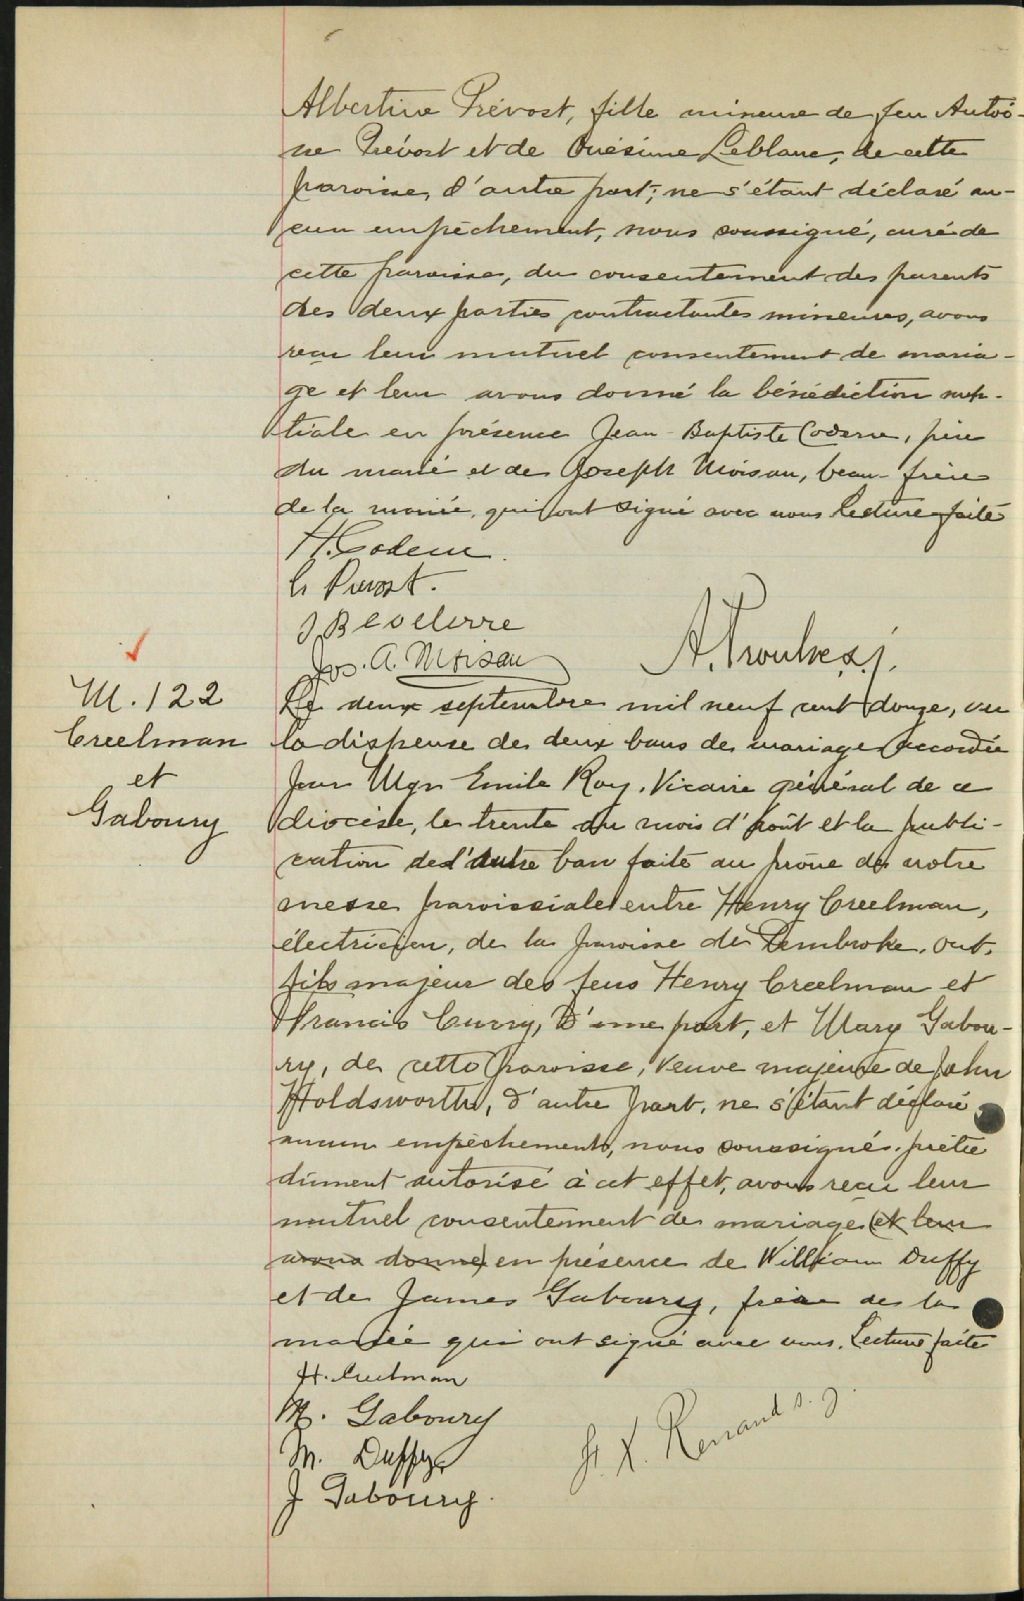 Albertine Prévost, fille mineure de feu Antoi-
ne Prévost et de Onésime Leblanc, de cette
paroisse, d'autre part; ne s'étant déclaré au-
cun empêchement, nous soussigné, curé de
cette paroisse, du consentement des parents
des deux parties contractantes mineures, avons
reçu leur mutuel consentement de maria-
ge et leur avons donné la bénédiction nup-
tiale en présence Jean-Baptiste Coderre, père
du marié et de Joseph Moisan, beau-frère
de la mariée, qui ont signé avec nous Lecture faite
H. Coderre.
J B Coderre
Jos. A. Moisan
A. Proulx s.j.
M. 122
Creelman
et
Gaboury
Le deux septembre mil neuf cent douze, vu
la dispense de deux bans de mariage accordée
par Mgr Emile Roy, Vicaire général de ce
diocèse, le trente du mois d'août et la publi-
cation de l'autre ban faite au prône de notre
messe paroissiale entre Henry Creelman,
électricien, de la paroisse de Pembroke, Ont.
fils majeur des feus Henry Creelman et
Francis Curry, d'une part, et Mary Gabou-
ry, de cette paroisse, veuve majeure de John
Holdsworth, d'autre part, ne s'étant déclaré
aucun empêchement, nous soussigné, prêtre
dûment autorisé à cet effet, avons reçu leur
mutuel consentement de mariage (et leur
avons donné) en présence de William Duffy
et de James Gaboury, frère de la
mariée qui ont signé avec nous. Lecture faite
H. Creelman
M. Gaboury
M. Duffy
J Gaboury.
F. X. Renaud s. j.